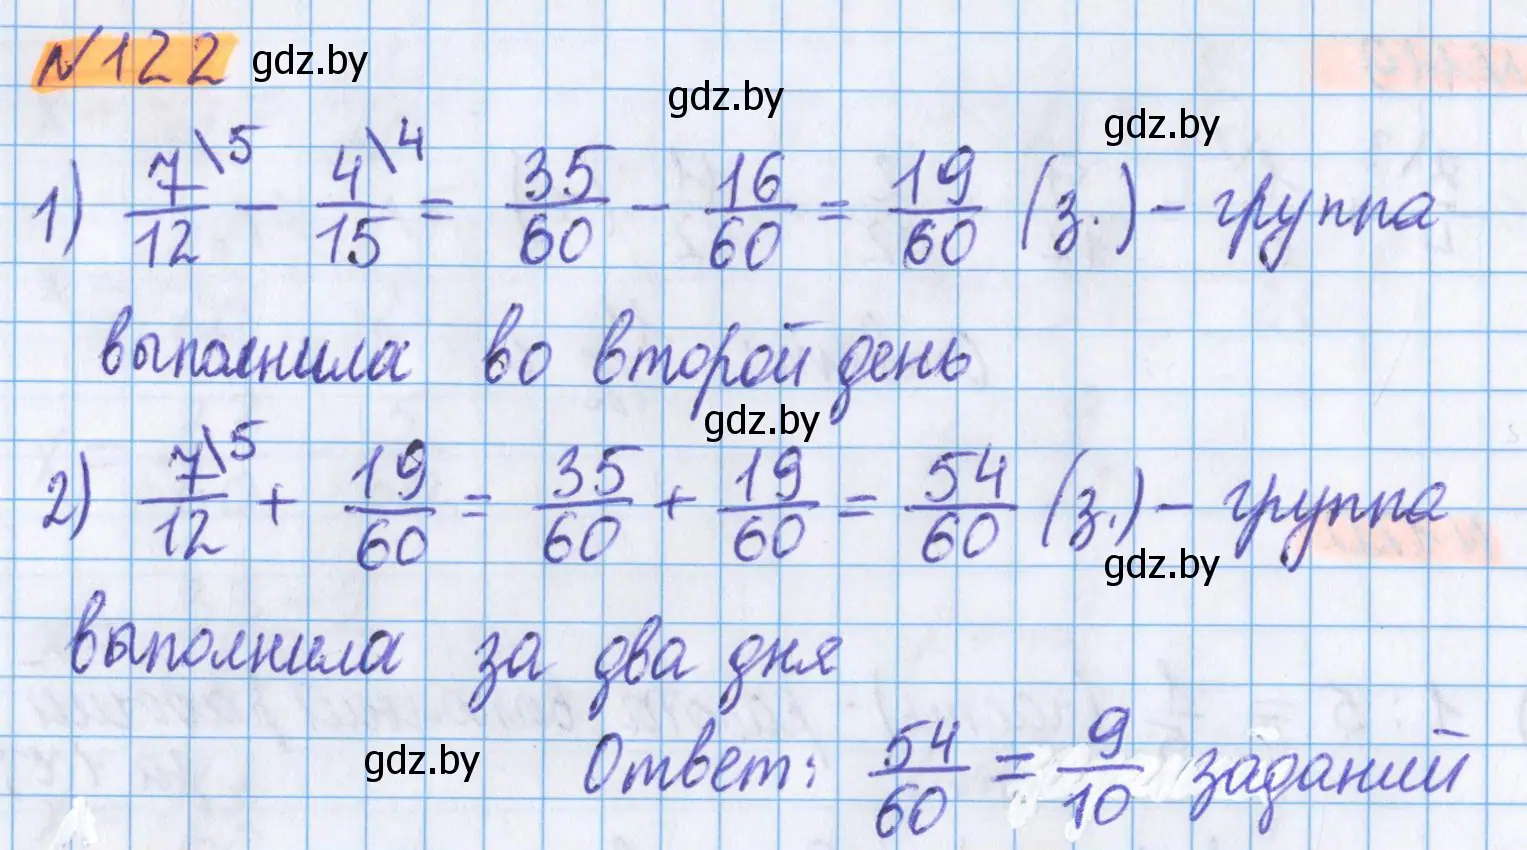 №122 gdz.by
gdz.by
gdz.by
1) 7/12\5 − 4/15\4 = 35/60 − 16/60 = 19/60 (з.) – группа
выполнила во второй день
gdz.by
2) 7/12\5 + 19/60 = 35/60 + 19/60 = 54/60 (з.) – группа
gdz.by
выполнила за два дня
gdz.by
Ответ: 54/60 = 9/10 заданий